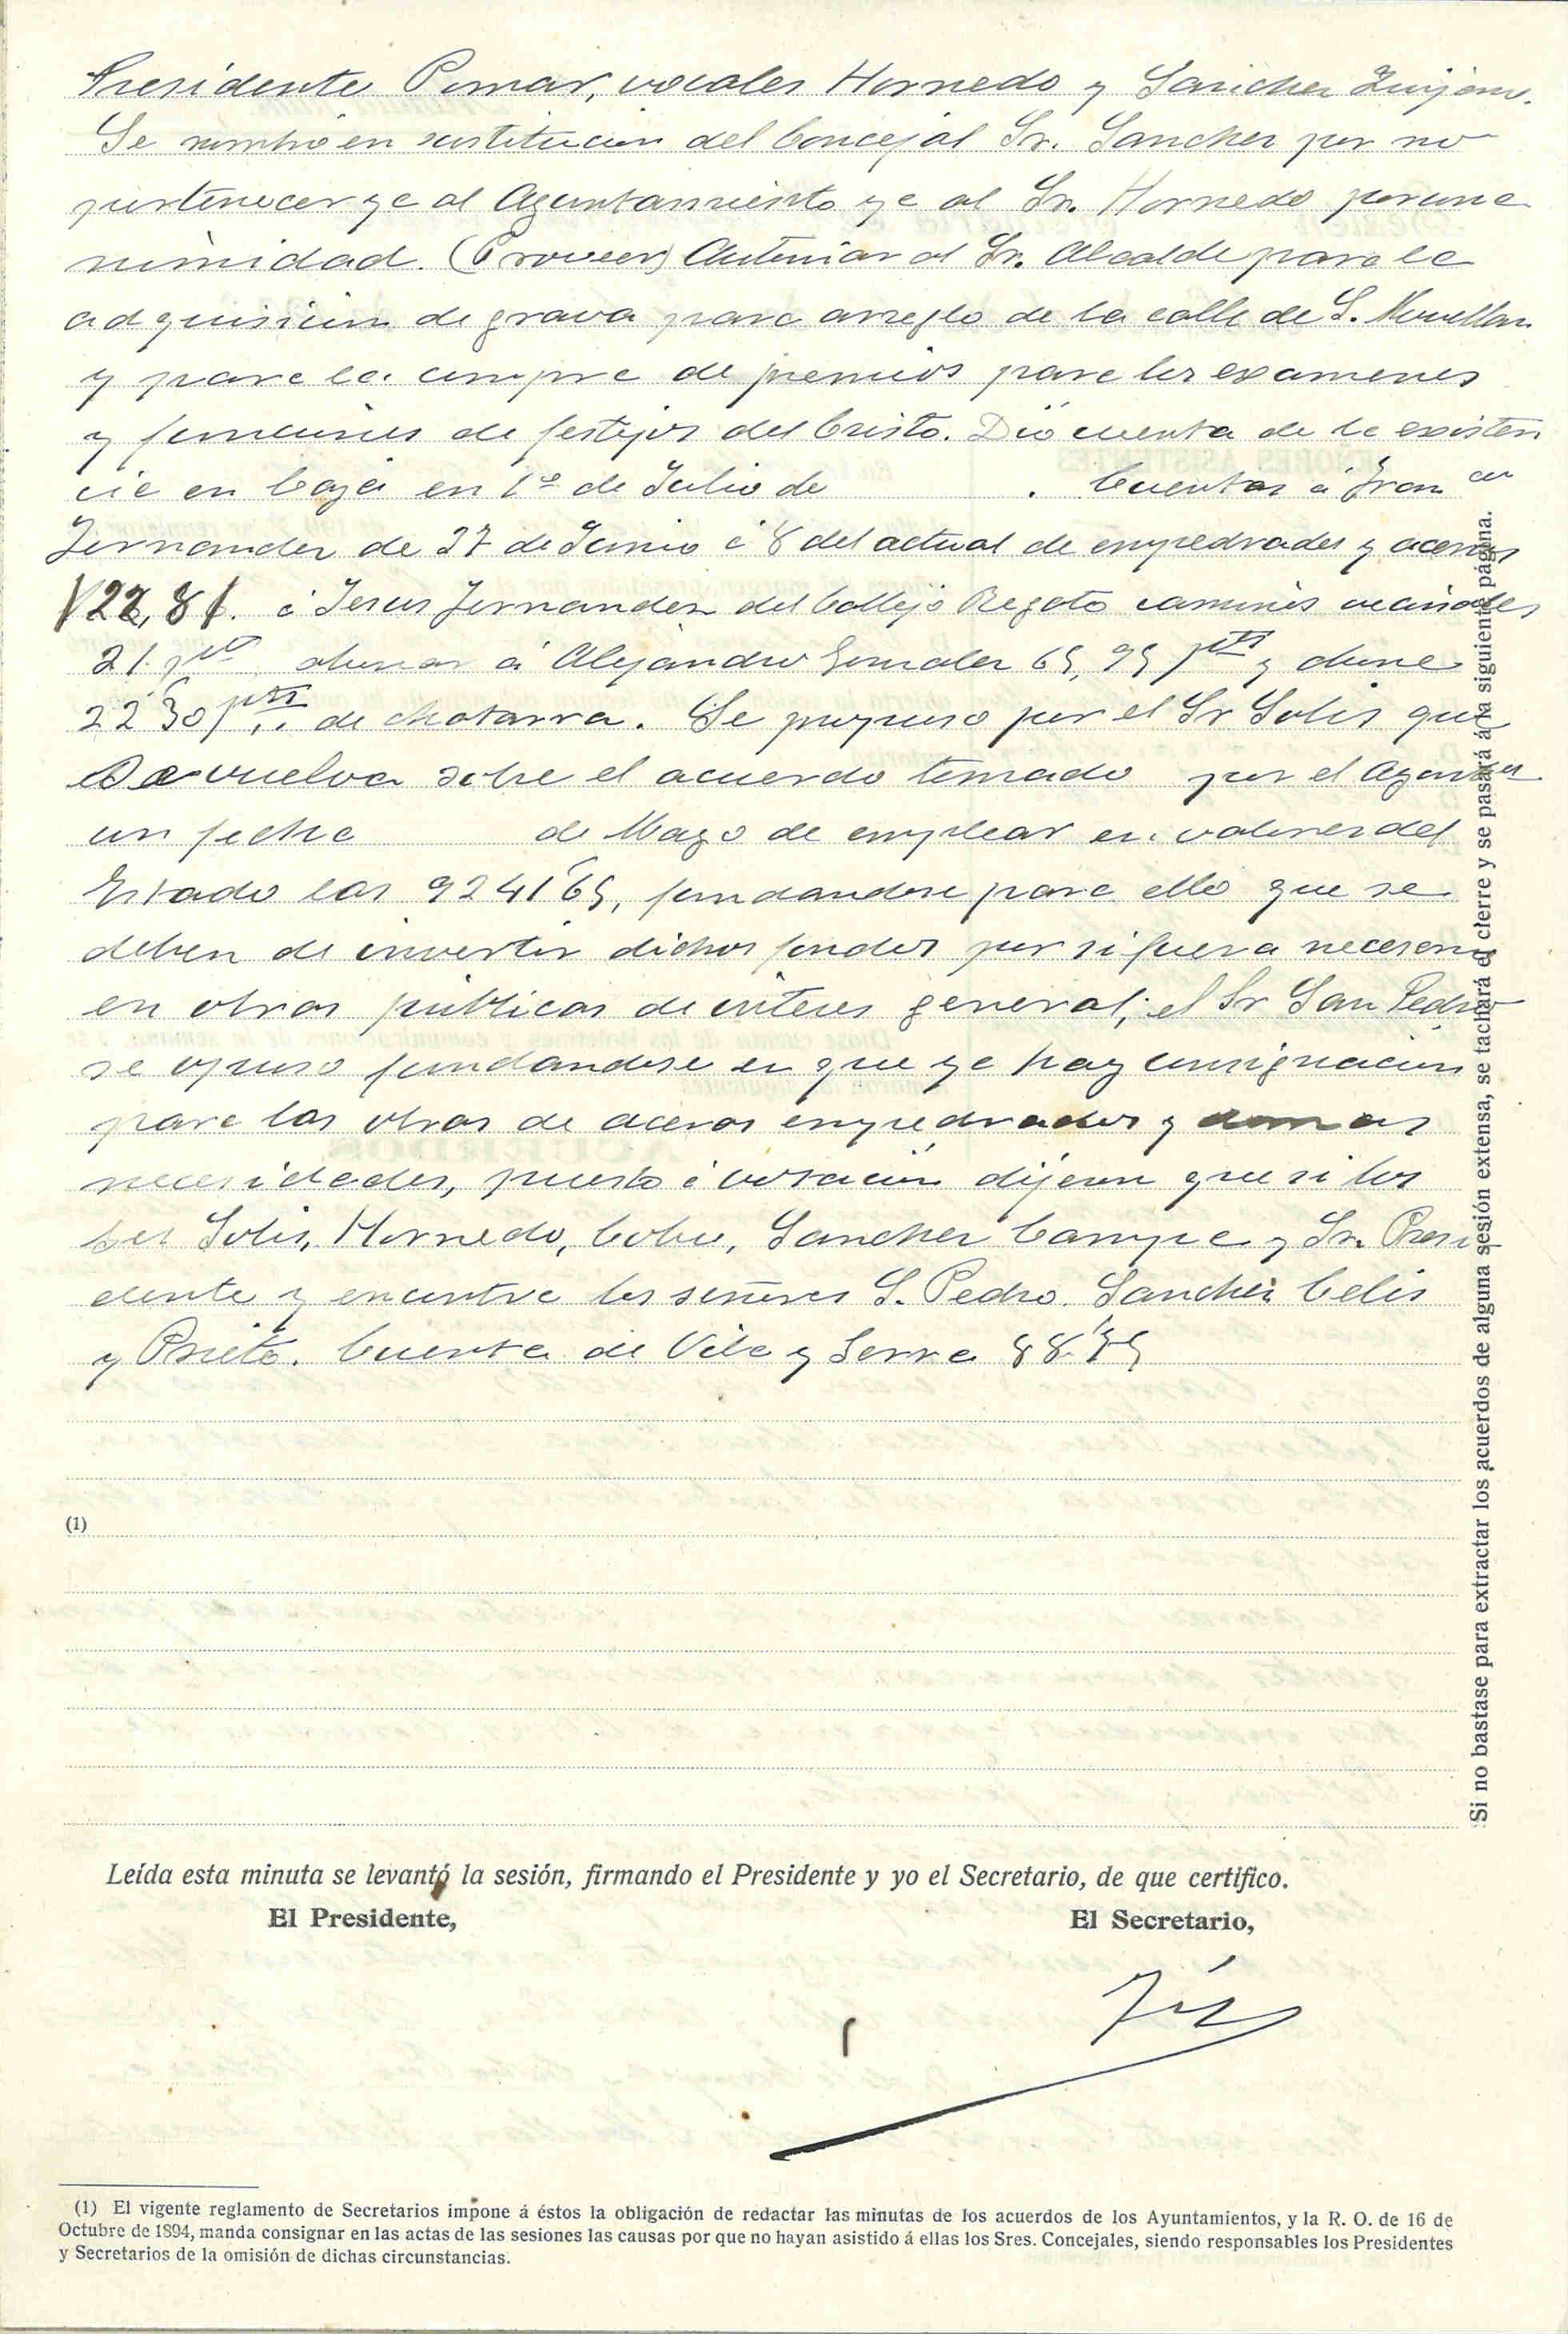 Presidente Pomar, vocales Hornedo y Sanchez Quijano.
Se nombró en sustitucion del Concejal Sr. Sanchez por no
pertenecer ya al Ayuntamiento ya al Sr. Hornedo por una
nimidad. (Proveer) Autorizar al Sr. Alcalde para la
adquisicion de grava para arreglo de la calle de S.
y para la compra de premios para los examenes
y funciones de festejos del Cristo. Dió cuenta de la existen
cia en Caja en 1º de Julio de . Cuentas á Franco
Fernandez de 27 de Junio á 8 del actual de empedrados y aceras
122,81. á Jesus Fernandez del Callejo Regato caminos vecinales
21 pts abonar á Alejandro Gonzalez 65,95 pts y abone
22'30 pts de chatarra. Se propuso por el Sr Solis que
se vuelva sobre el acuerdo tomado por el Ayunto
con fecha de Mayo de emplear en valores del
Estado las 9241'65, fundandose para ello que se
deben de invertir dichos fondos por si fuera necesario
en obras públicas de interes general; el Sr San Pedro
se opuso fundandose en que ya hay consignacion
para las obras de aceras empedrados y demas
necesidades, puesto á votación dijeron que si los
Solis, Hornedo, Cobo, Sanchez Campa y Sr. Presi
dente y en contra los señores S. Pedro. Sanchez Celis
y Prieto. Cuenta de Vila y Serra 88'75
(1)
Si no bastase para extractar los acuerdos de alguna sesión extensa, se tachará el cierre y se pasará á la siguiente página.
Leída esta minuta se levantó la sesión, firmando el Presidente y yo el Secretario, de que certifico.
El Presidente, El Secretario,
(1) El vigente reglamento de Secretarios impone á éstos la obligación de redactar las minutas de los acuerdos de los Ayuntamientos, y la R. O. de 16 de
Octubre de 1894, manda consignar en las actas de las sesiones las causas por que no hayan asistido á ellas los Sres. Concejales, siendo responsables los Presidentes
y Secretarios de la omisión de dichas circunstancias.